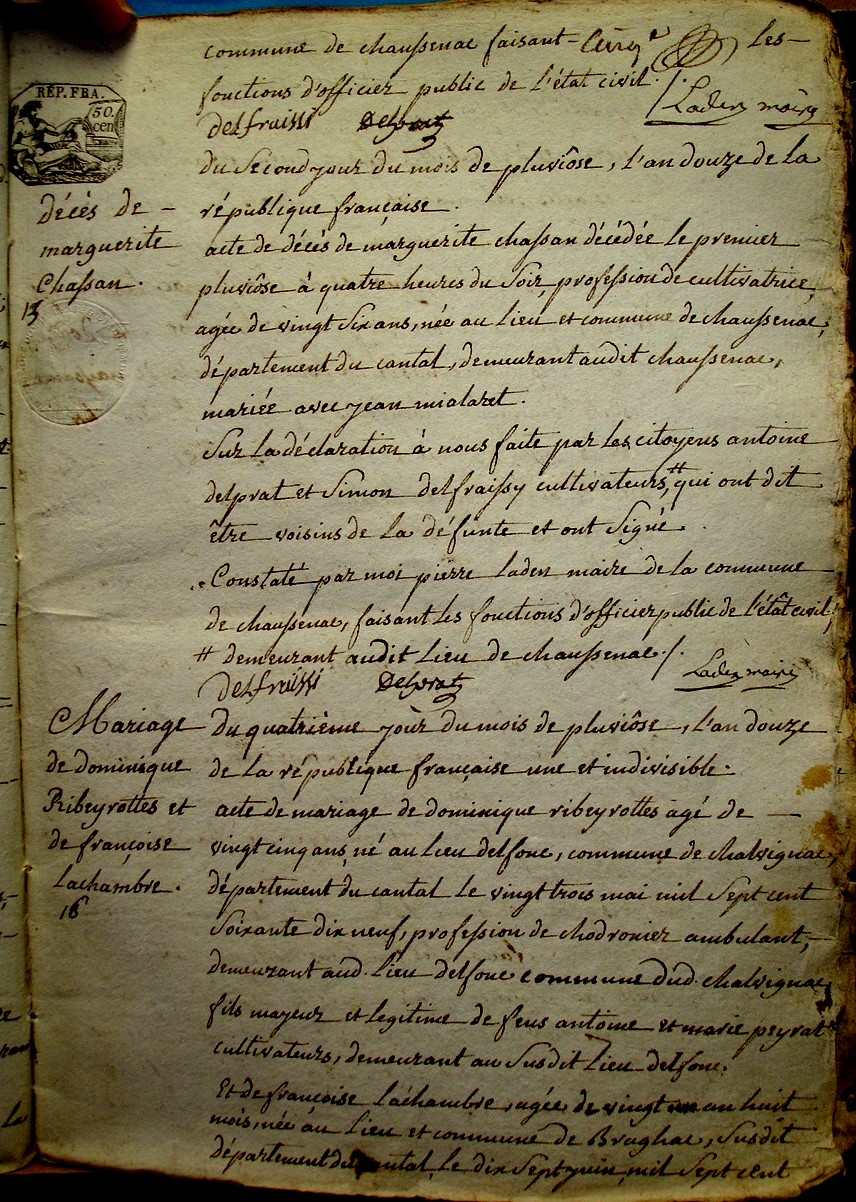 commune de chaussenac faisant- les-
fonctions d'officier public de l'état civil ./.
delfraissi Delprat Laden maire
RÉP. FRA.
50.
cen
du Second jour du mois de pluviôse, l'an douze de la
république française.
décès de -
marguerite
Chassan.
13
acte de décès de marguerite chassan décédée le premier
pluviôse à quatre heures du Soir, profession de cultivatrice,
agée de vingt Six ans, née au Lieu et commune de chaussenac,
département du cantal, demeurant audit chaussenac,
mariée avec jean mialaret.
Sur La déclaration à nous faite par les citoyens antoine
delprat et Simon delfraissy cultivateurs,# qui ont dit
être voisins de La défunte et ont Signé.
Constaté par moi pierre laden maire de la commune
de chaussenac, faisant les fonctions d'officier public de l'état civil,
# demeurant audit Lieu de chaussenac ./.
delfraissi Delprat Laden maire
Mariage
de dominique
Ribeyrottes et
de françoise
Lachambre.
16
du quatrième jour du mois de pluviôse, l'an douze
de La république française une et indivisible.
acte de mariage de dominique ribeyrottes agé de —
vingt cinq ans, né au Lieu delfonc, commune de chalvignac,
département du cantal le vingt trois mai mil Sept cent
Soixante dix neuf, profession de chodronier ambulant,
demeurant aud. Lieu delfonc commune dud. chalvignac,
fils majeur et legitime de feus antoine et marie peyrat
cultivateurs, demeurant au Susdit Lieu delfonc.
Et de françoise Lachambre, agée de vingt un an huit
mois, née au Lieu et commune de Braghac, Susdit
département du cantal, le dix Sept juin, mil Sept cent